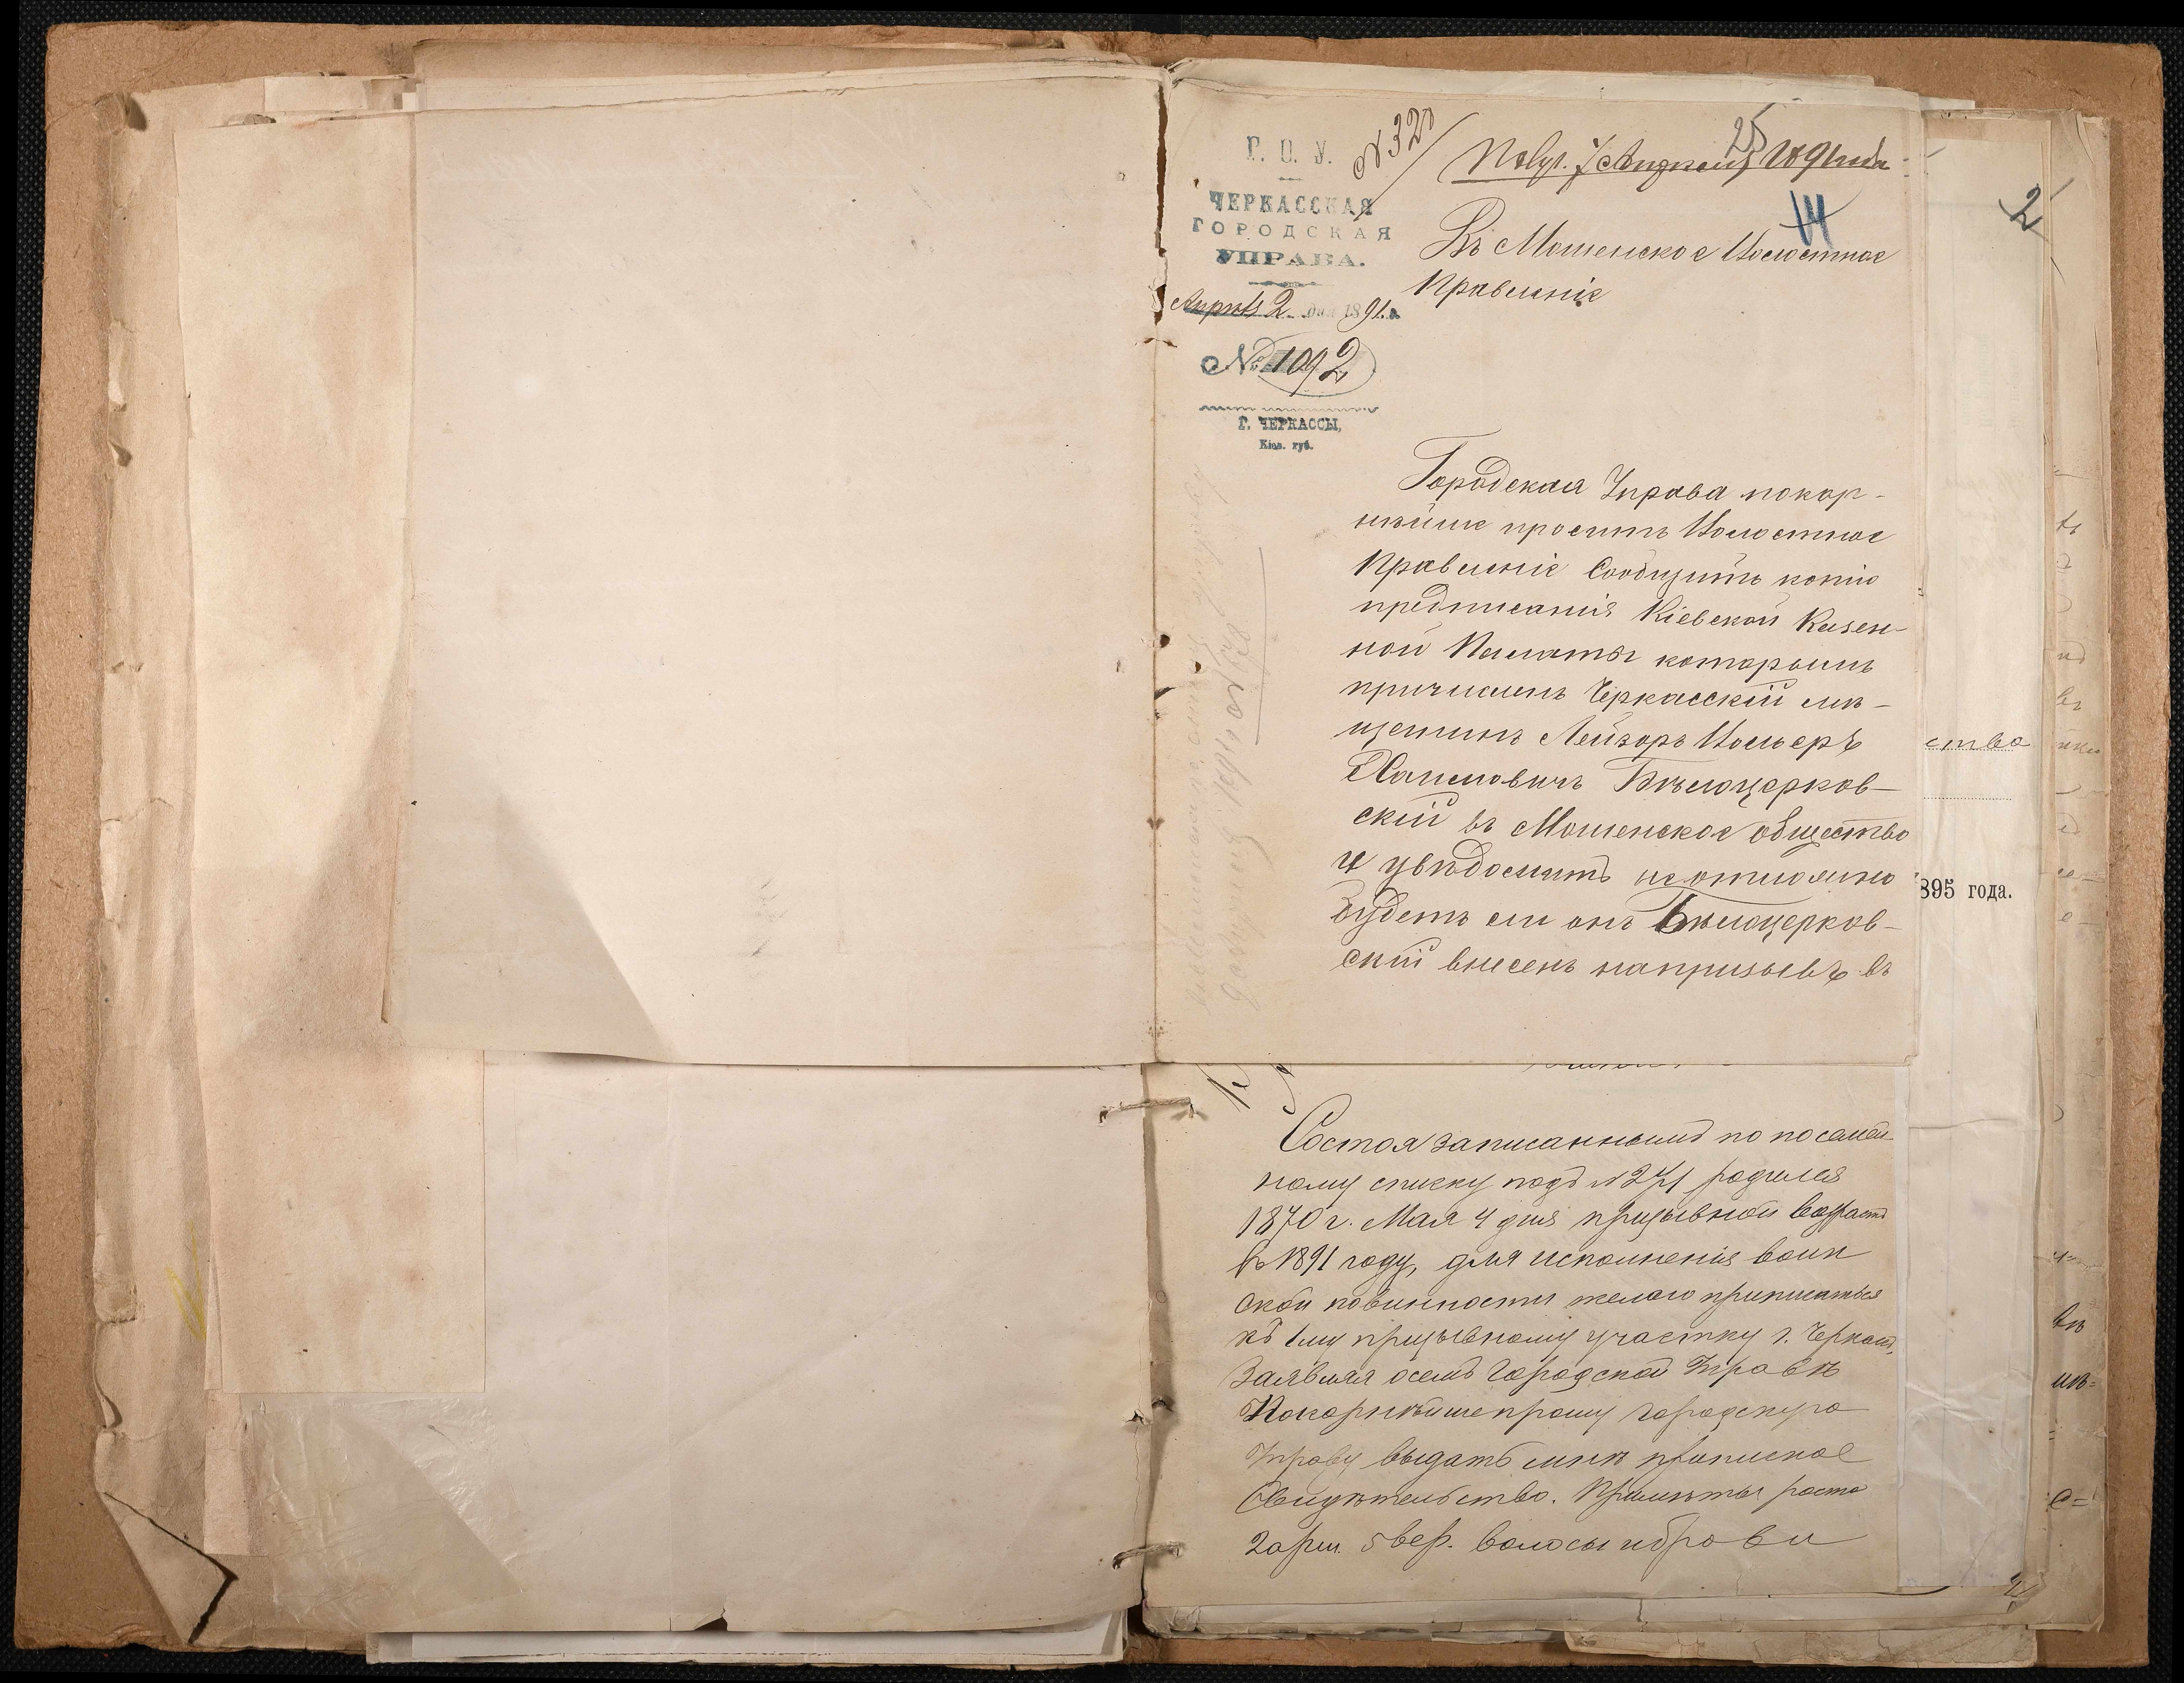 Г. О. У.
ЧЕРКАССКАЯ
ГОРОДСКАЯ
УПРАВА.
Апрѣля 2 дня 1891 г.
№ 1092
Г. ЧЕРКАССЫ,
Кіев. губ.
№ 320
Полу. 7 Апрѣля 1891 года
25
14
Въ Мошенское Волостное
Правленіе
Городская Управа покор-
нѣйше проситъ Волостное
Правленіе Сообщить копію
предписанія Кіевской Казен-
ной Палаты которымъ
причисленъ Черкасскій мѣ-
щанинъ Лейзоръ Вольеръ
Хаимовичъ Бѣлоцерков-
скій въ Мошенское общество
и увѣдомить неотложно
будетъ ли онъ Бѣлоцерков-
скій внесенъ напризывъ въ
Состоя записаннымъ по посемей-
ному списку подъ № 271 родился
1870 г. Мая 4 дня призывной возрастъ
въ 1891 году, для исполненія воин
ской повинности желаю приписаться
къ 1му призывному участку г. Черкасъ,
Заявляя осемъ Городской Управѣ
Покорнѣйше прошу городскую
Управу выдать мнѣ приписное
Свидѣтельство. Примѣты роста
2 арш. 5 вер. волосы и брови
2
ства
895 года.